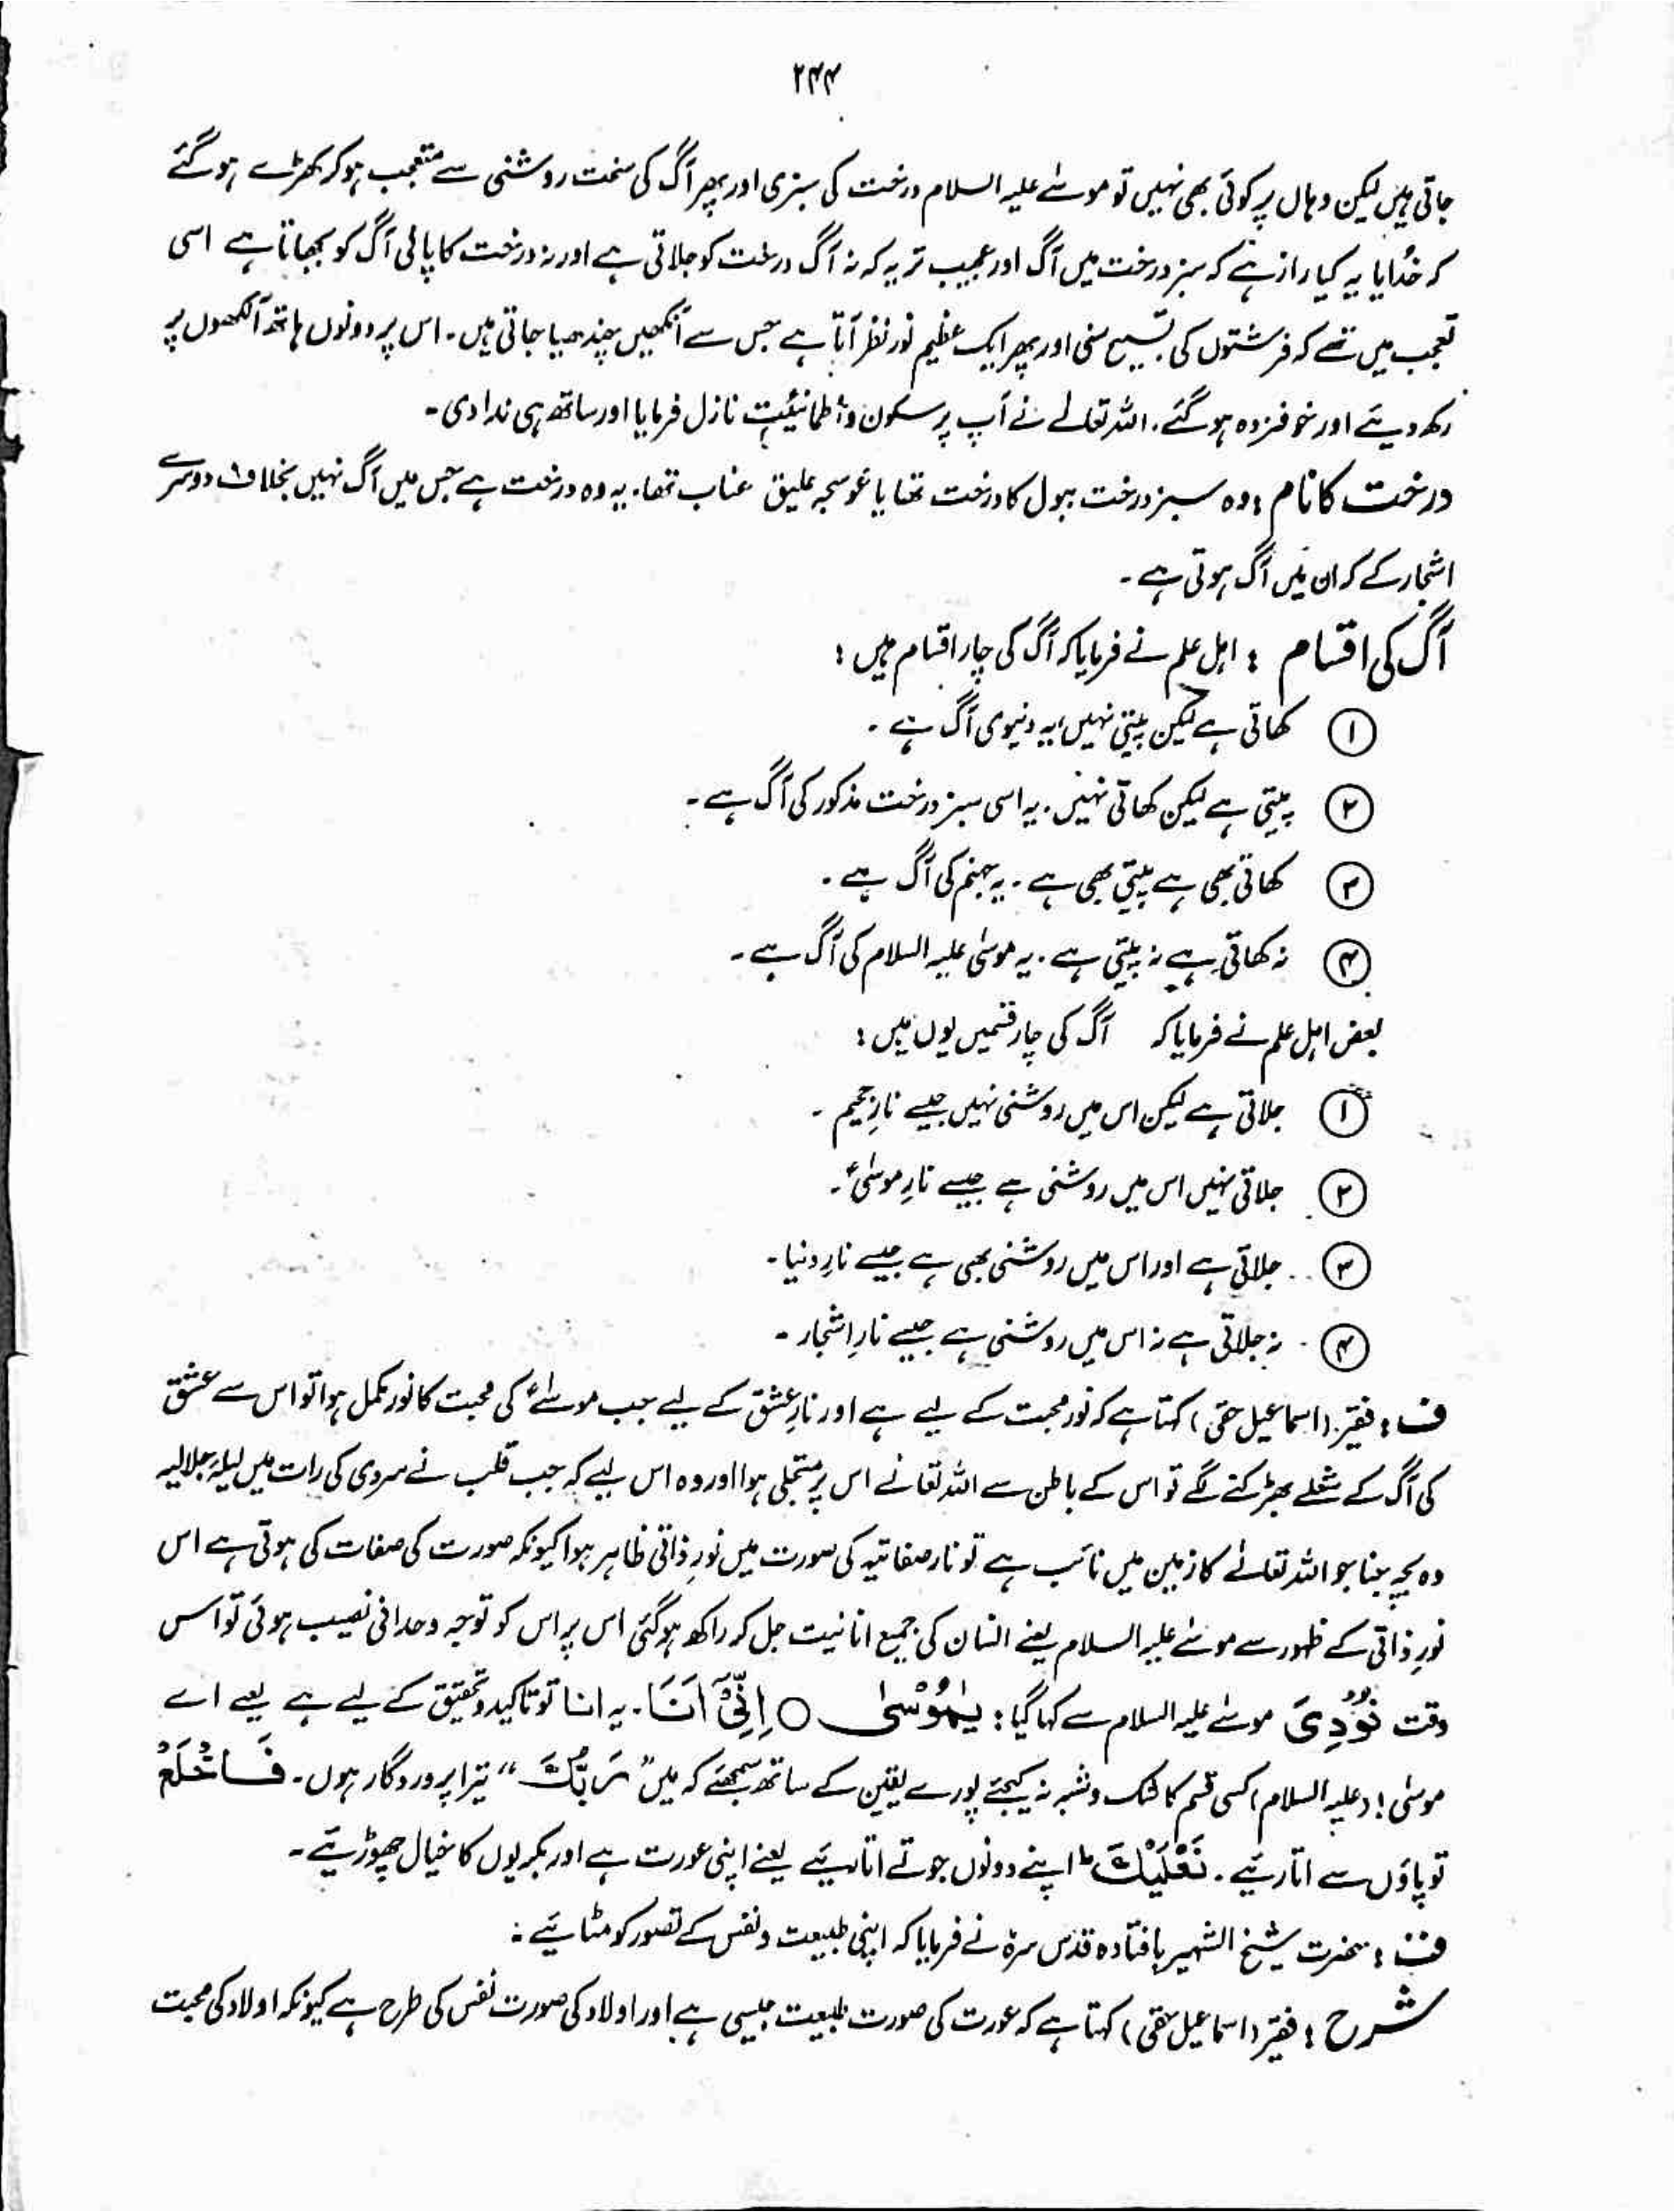 ۲۴۴
جاتی ہیں لیکن وہاں پر کوئی بھی نہیں تو موسےٰ علیہ السلام درخت کی سبزی اور پھر آگ کی سخت روشنی سے متعجب ہو کر کھڑے ہو گئے
کہ خدایا یہ کیا راز ہے کہ سبز درخت میں آگ اور عجیب تر یہ کہ نہ آگ درخت کو جلاتی ہے اور نہ درخت کا پانی آگ کو بجھاتا ہے اسی
تعجب میں تھے کہ فرشتوں کی تسبیح سنی اور پھر ایک عظیم نور نظر آتا ہے جس سے آنکھیں چندھیا جاتی ہیں۔ اس پر دونوں ہاتھ آنکھوں پر
رکھ دیئے اور خوفزدہ ہو گئے۔ اللہ تعالےٰ نے آپ پر سکون و اطمانیت نازل فرمایا اور ساتھ ہی ندا دی۔
درخت کا نام : وہ سبز درخت ببول کا درخت تھا یا عوسجہ علیق عناب تھا۔ یہ وہ درخت ہے جس میں آگ نہیں بخلاف دوسرے
اشجار کے کہ ان میں آگ ہوتی ہے۔
آگ کی اقسام : اہل علم نے فرمایا کہ آگ کی چار اقسام ہیں :
① کھاتی ہے لیکن پیتی نہیں، یہ دنیوی آگ ہے۔
② پیتی ہے لیکن کھاتی نہیں۔ یہ اسی سبز درخت مذکور کی آگ ہے۔
③ کھاتی بھی ہے پیتی بھی ہے۔ یہ جہنم کی آگ ہے۔
④ نہ کھاتی ہے نہ پیتی ہے۔ یہ موسیٰ علیہ السلام کی آگ ہے۔
بعض اہل علم نے فرمایا کہ آگ کی چار قسمیں یوں ہیں :
① جلاتی ہے لیکن اس میں روشنی نہیں جیسے نارِ جحیم۔
② جلاتی نہیں اس میں روشنی ہے جیسے نارِ موسیٰؑ۔
③ جلاتی ہے اور اس میں روشنی بھی ہے جیسے نارِ دنیا۔
④ نہ جلاتی ہے نہ اس میں روشنی ہے جیسے نارِ اشجار۔
ف : فقیر (اسماعیل حقی) کہتا ہے کہ نور محبت کے لیے ہے اور نارِ عشق کے لیے جب موسےٰؑ کی محبت کا نور مکمل ہوا تو اس سے عشق
کی آگ کے شعلے بھڑکنے لگے تو اس کے باطن سے اللہ تعالےٰ اس پر متجلی ہوا اور وہ اس لیے کہ جب قلب نے سردی کی رات میں لیلۂ جلالیہ
وہ بچہ جنا جو اللہ تعالےٰ کا زمین میں نائب ہے تو نار صفاتیہ کی صورت میں نورِ ذاتی ظاہر ہوا کیونکہ صورت کی صفات کی ہوتی ہے اس
نورِ ذاتی کے ظہور سے موسےٰ علیہ السلام یعنے انسان کی جمیع انانیت جل کر راکھ ہو گئی اس پر اس کو توجہ وحدانی نصیب ہوئی تو اس
وقت نُوْدِیَ موسےٰ علیہ السلام سے کہا گیا : یٰمُوْسٰی ○ اِنِّیْٓ اَنَا۔ یہ انا تو تاکید و تحقیق کے لیے ہے یعے اے
موسٰی! (علیہ السلام) کسی قسم کا شک و شبہ نہ کیجئے پورے یقین کے ساتھ سمجھئے کہ میں "رَبُّكَ" تیرا پروردگار ہوں۔ فَاخْلَعْ
تو پاؤں سے اتاریئے۔ نَعْلَیْكَ اپنے دونوں جوتے اتاریئے یعنے اپنی عورت ہے اور بکریوں کا خیال چھوڑیئے۔
ف : حضرت شیخ الشہیر بافتادہ قدس سرہٗ نے فرمایا کہ اپنی طبیعت و نفس کے تصور کو مٹایئے :
شرح : فقیر (اسماعیل حقی) کہتا ہے کہ عورت کی صورت طبیعت جیسی ہے اور اولاد کی صورت نفس کی طرح ہے کیونکہ اولاد کی محبت